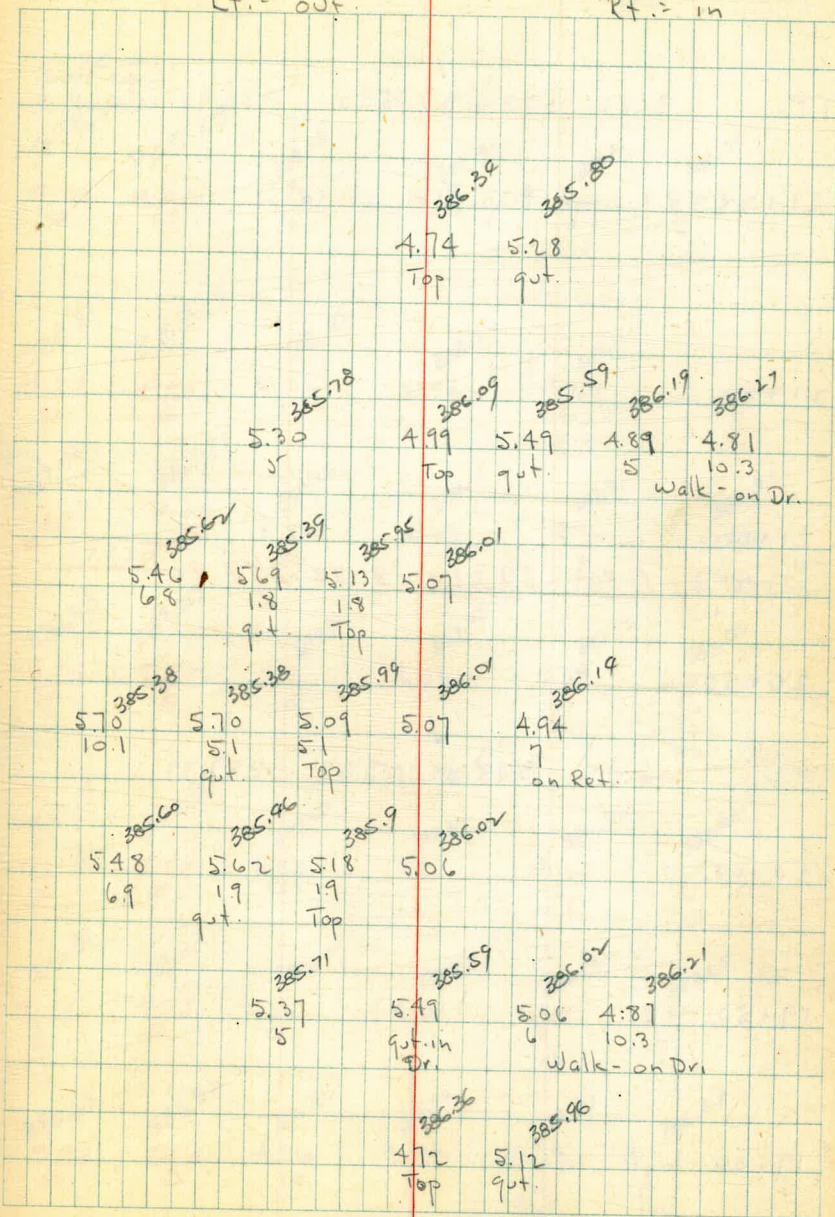 Lt. = out. Rt. = in
386.34 385.80
4.74 5.28
Top gut.
385.78 386.09 385.59 386.19 386.27
5.30 4.99 5.49 4.89 4.81
5 Top gut. 5 10.3
Walk - on Dr.
385.62 385.39 385.95 386.01
5.46 5.69 5.13 5.07
6.8 1.8 1.8
gut. Top
385.38 385.38 385.99 386.01 386.14
5.70 5.70 5.09 5.07 4.94
10.1 5.1 5.1 7
gut. Top on Ret.
385.60 385.46 385.9 386.02
5.48 5.62 5.18 5.06
6.9 1.9 1.9
gut. Top
385.71 385.59 386.02 386.21
5.37 5.49 5.06 4.87
5 gut. in 6 10.3
Dr. Walk - on Dr.
386.36 385.96
4.72 5.12
Top gut.